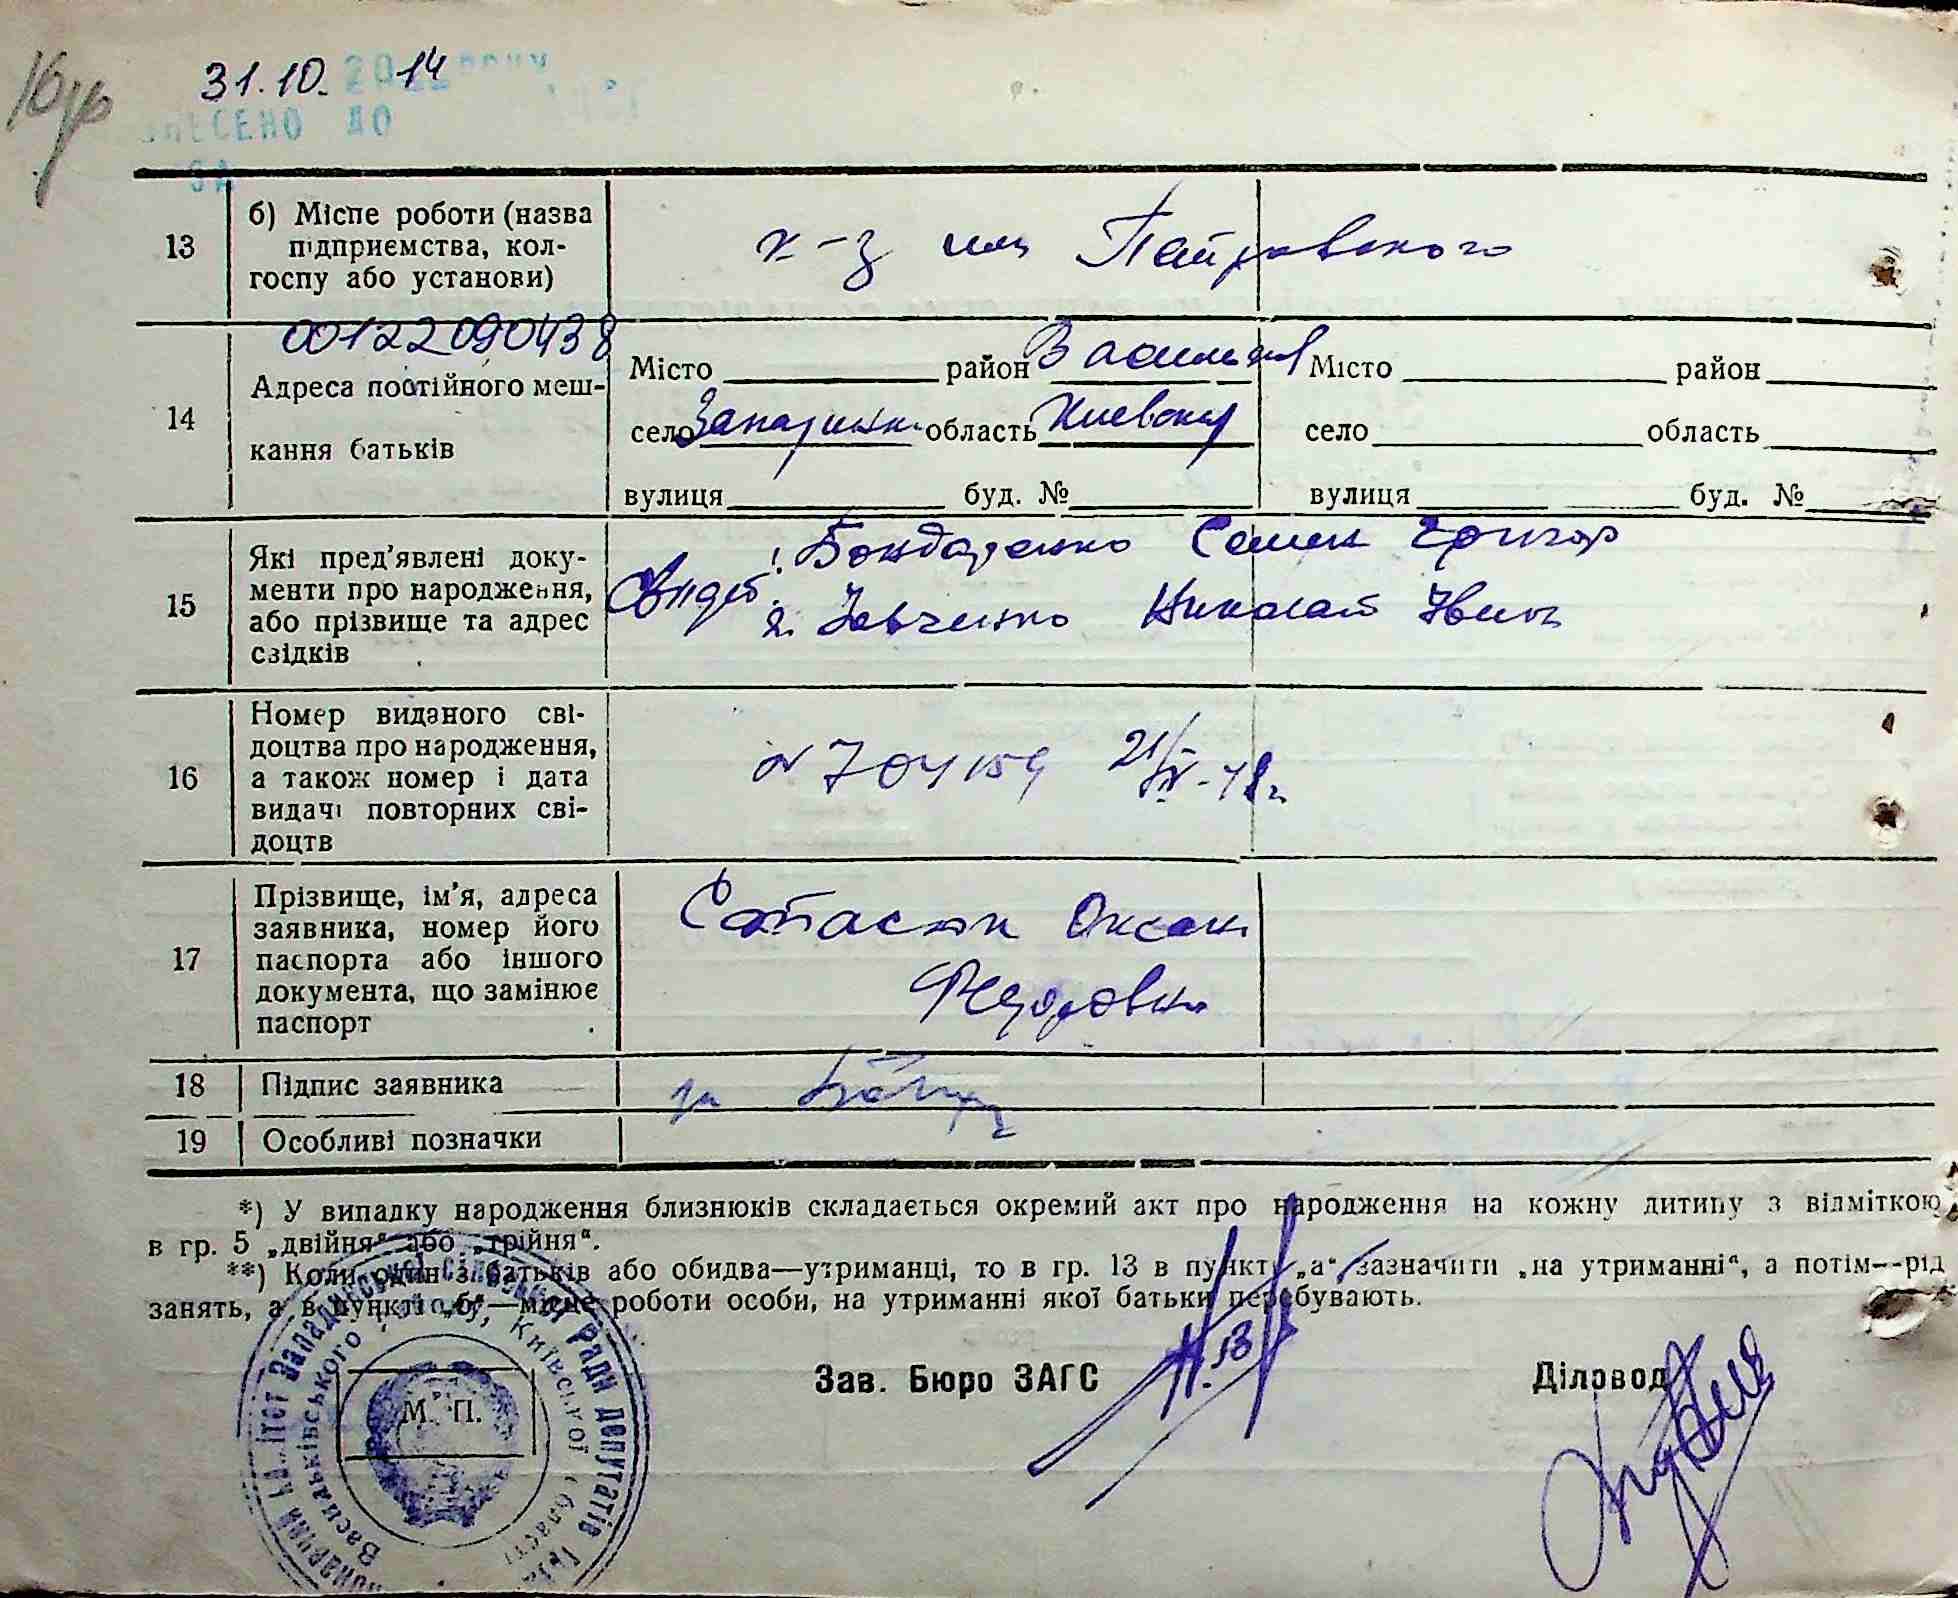 31.10. 2014 року
ВНЕСЕНО ДО
13 б) Місце роботи (назва
підприємства, кол-
госпу або установи)
к-з им Петровского
00122090438
14 Адреса постійного меш-
кання батьків
Місто район Васильков Місто район
село область Киевская село область
вулиця буд. № вулиця буд. №
15 Які пред'явлені доку-
менти про народження,
або прізвище та адрес
свідків
Свидет. 1. Бондаренко Семен Григор
2. Николай Иван
16 Номер виданого сві-
доцтва про народження,
а також номер і дата
видачі повторних сві-
доцтв
N 704159 21/IV-48г.
17 Прізвище, ім'я, адреса
заявника, номер його
паспорта або іншого
документа, що замінює
паспорт
Оксана
Федоровна
18 Підпис заявника
19 Особливі позначки
*) У випадку народження близнюків складається окремий акт про народження на кожну дитину з відміткою
в гр. 5 „двійня“ або „трійня“.
**) Коли один з батьків або обидва—утриманці, то в гр. 13 в пункті „а“ зазначити „на утриманні“, а потім--рід
занять, а в пункті „б“—місце роботи особи, на утриманні якої батьки перебувають.
Зав. Бюро ЗАГС Діловод
М. П.
Васильківського району, Київської області